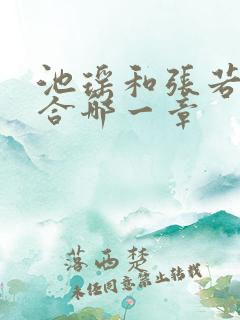 池瑶和張若
合哪一章
落西楚
未经同意禁止转载